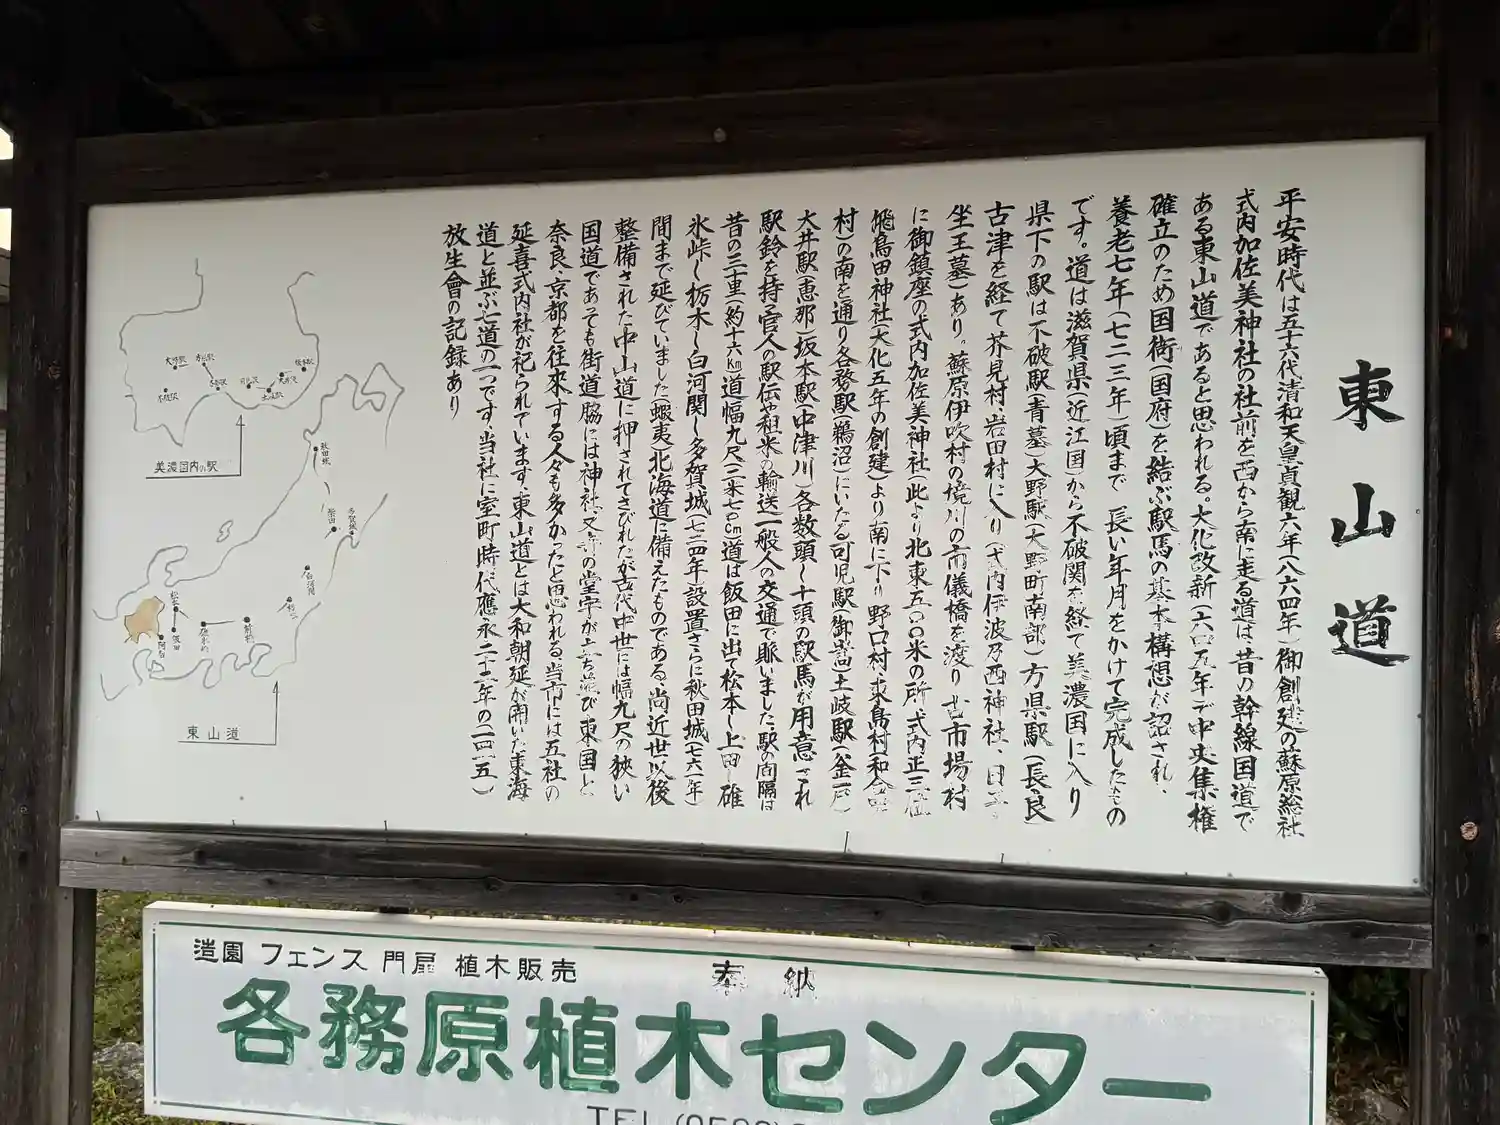 東山道
平安時代は五十六代清和天皇貞観六年(八六四年)御創建の蘇原総社
式内加佐美神社の社前を西から南に走る道は、昔の幹線国道で
ある東山道であると思われる。大化改新(六四五年)で中央集権
確立のため国衙(国府)を結ぶ駅馬の基本構想が認され、
養老七年(七二三年)頃まで長い年月をかけて完成したもの
です。道は滋賀県(近江国)から不破関を経て美濃国に入り
県下の駅は不破駅(青墓)大野駅(大野町南部)方県駅(長良)
古津を経て芥見村、岩田村に入り(式内伊波乃西神社、日子
坐王墓)あり。蘇原伊吹村の境川の市儀橋を渡り 市場村
に御鎮座の式内加佐美神社(此より北東五〇〇米の所、式内正三位
飛鳥田神社(大化五年の創建)より南に下り 野口村、東島村(和合
村)の南を通り各務駅(鵜沼)にいたる可児駅(御嵩)土岐駅(釜戸)
大井駅(恵那)坂本駅(中津川)各数頭〜十頭の駅馬が用意され
駅鈴を持つ官人の駅伝や租米の輸送一般人の交通で賑いました、駅の間隔は
昔の三十里(約十六㎞)道幅九尺(二米七〇㎝)道は飯田に出て松本〜上田〜碓
氷峠〜栃木〜白河関〜多賀城(七二四年)設置さらに秋田城(七六一年)
間まで延びていました(蝦夷、北海道に備えたものである、尚近世以後
整備された中山道に押されてさびれたが古代中世には幅九尺の狭い
国道であっても街道脇には神社、又 の堂宇が立ち並び東国と
奈良、京都を往来する人々も多かったと思われる当市には五社の
延喜式内社が祀られています、東山道とは大和朝廷が開いた東海
道と並ぶ七道の一つです、当社に室町時代應永二十二年の(一四一五)
放生會の記録あり
美濃国内の駅
秋田城
多賀城
柴田
白河関
松本
飯田
碓氷峠
前橋
阿智
東山道
造園 フェンス 門扉 植木販売
奉納
各務原植木センター